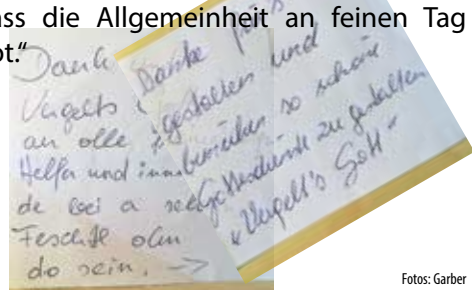 ass die Allgemeinheit an feinen Tag
ot.“
Dank
Vergelts
an olle
Helfa und
de bei a
Feschtl olm
do sein. →
Danke fürs
gestalten und
bemühen so schöne
Gottesdienste zu gestalten
„Vergelt's Gott“
Fotos: Garber